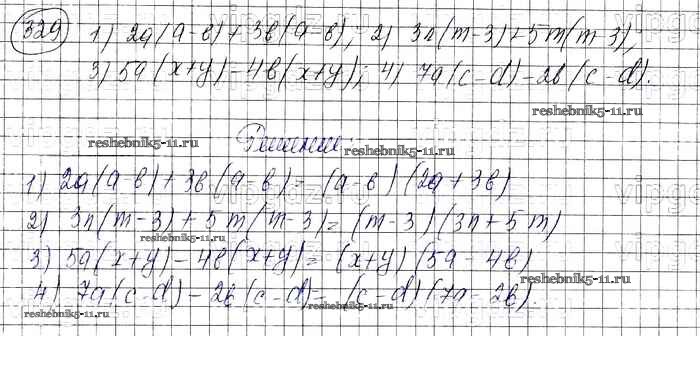 329 1) 2a(a-в)+3в(a-в); 2) 3n(m-3)+5m(m-3);
3) 5a(x+y)-4в(x+y); 4) 7a(c-d)-2в(c-d).
reshebnik5-11.ru reshebnik5-11.ru
Решение:
reshebnik5-11.ru
1) 2a(a-в)+3в(a-в)=(a-в)(2a+3в)
2) 3n(m-3)+5m(m-3)=(m-3)(3n+5m)
reshebnik5-11.ru
3) 5a(x+y)-4в(x+y)=(x+y)(5a-4в)
reshebnik5-11.ru
4) 7a(c-d)-2в(c-d)=(c-d)(7a-2в).
reshebnik5-11.ru reshebnik5-11.ru